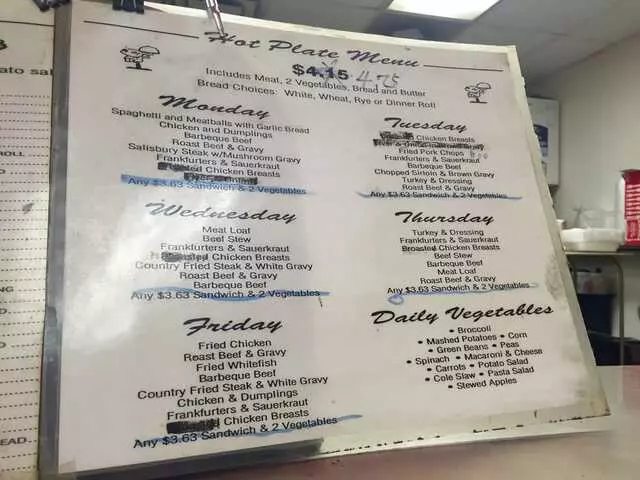 Hot Plate Menu
$4.15 4.75
Includes Meat, 2 Vegetables, Bread and Butter
Bread Choices: White, Wheat, Rye or Dinner Roll
Monday
Spaghetti and Meatballs with Garlic Bread
Chicken and Dumplings
Barbeque Beef
Roast Beef & Gravy
Salisbury Steak w/Mushroom Gravy
Frankfurters & Sauerkraut
Chicken Breasts
Any $3.63 Sandwich & 2 Vegetables
Tuesday
Chicken Breasts
Fried Pork Chops
Frankfurters & Sauerkraut
Barbeque Beef
Chopped Sirloin & Brown Gravy
Turkey & Dressing
Roast Beef & Gravy
Any $3.63 Sandwich & 2 Vegetables
Wednesday
Meat Loaf
Beef Stew
Frankfurters & Sauerkraut
Chicken Breasts
Country Fried Steak & White Gravy
Roast Beef & Gravy
Barbeque Beef
Any $3.63 Sandwich & 2 Vegetables
Thursday
Turkey & Dressing
Frankfurters & Sauerkraut
Broasted Chicken Breasts
Beef Stew
Barbeque Beef
Meat Loaf
Roast Beef & Gravy
Any $3.63 Sandwich & 2 Vegetables
Friday
Fried Chicken
Roast Beef & Gravy
Fried Whitefish
Barbeque Beef
Country Fried Steak & White Gravy
Chicken & Dumplings
Frankfurters & Sauerkraut
Chicken Breasts
Any $3.63 Sandwich & 2 Vegetables
Daily Vegetables
• Broccoli
• Mashed Potatoes • Corn
• Green Beans • Peas
• Spinach • Macaroni & Cheese
• Carrots • Potato Salad
• Cole Slaw • Pasta Salad
• Stewed Apples